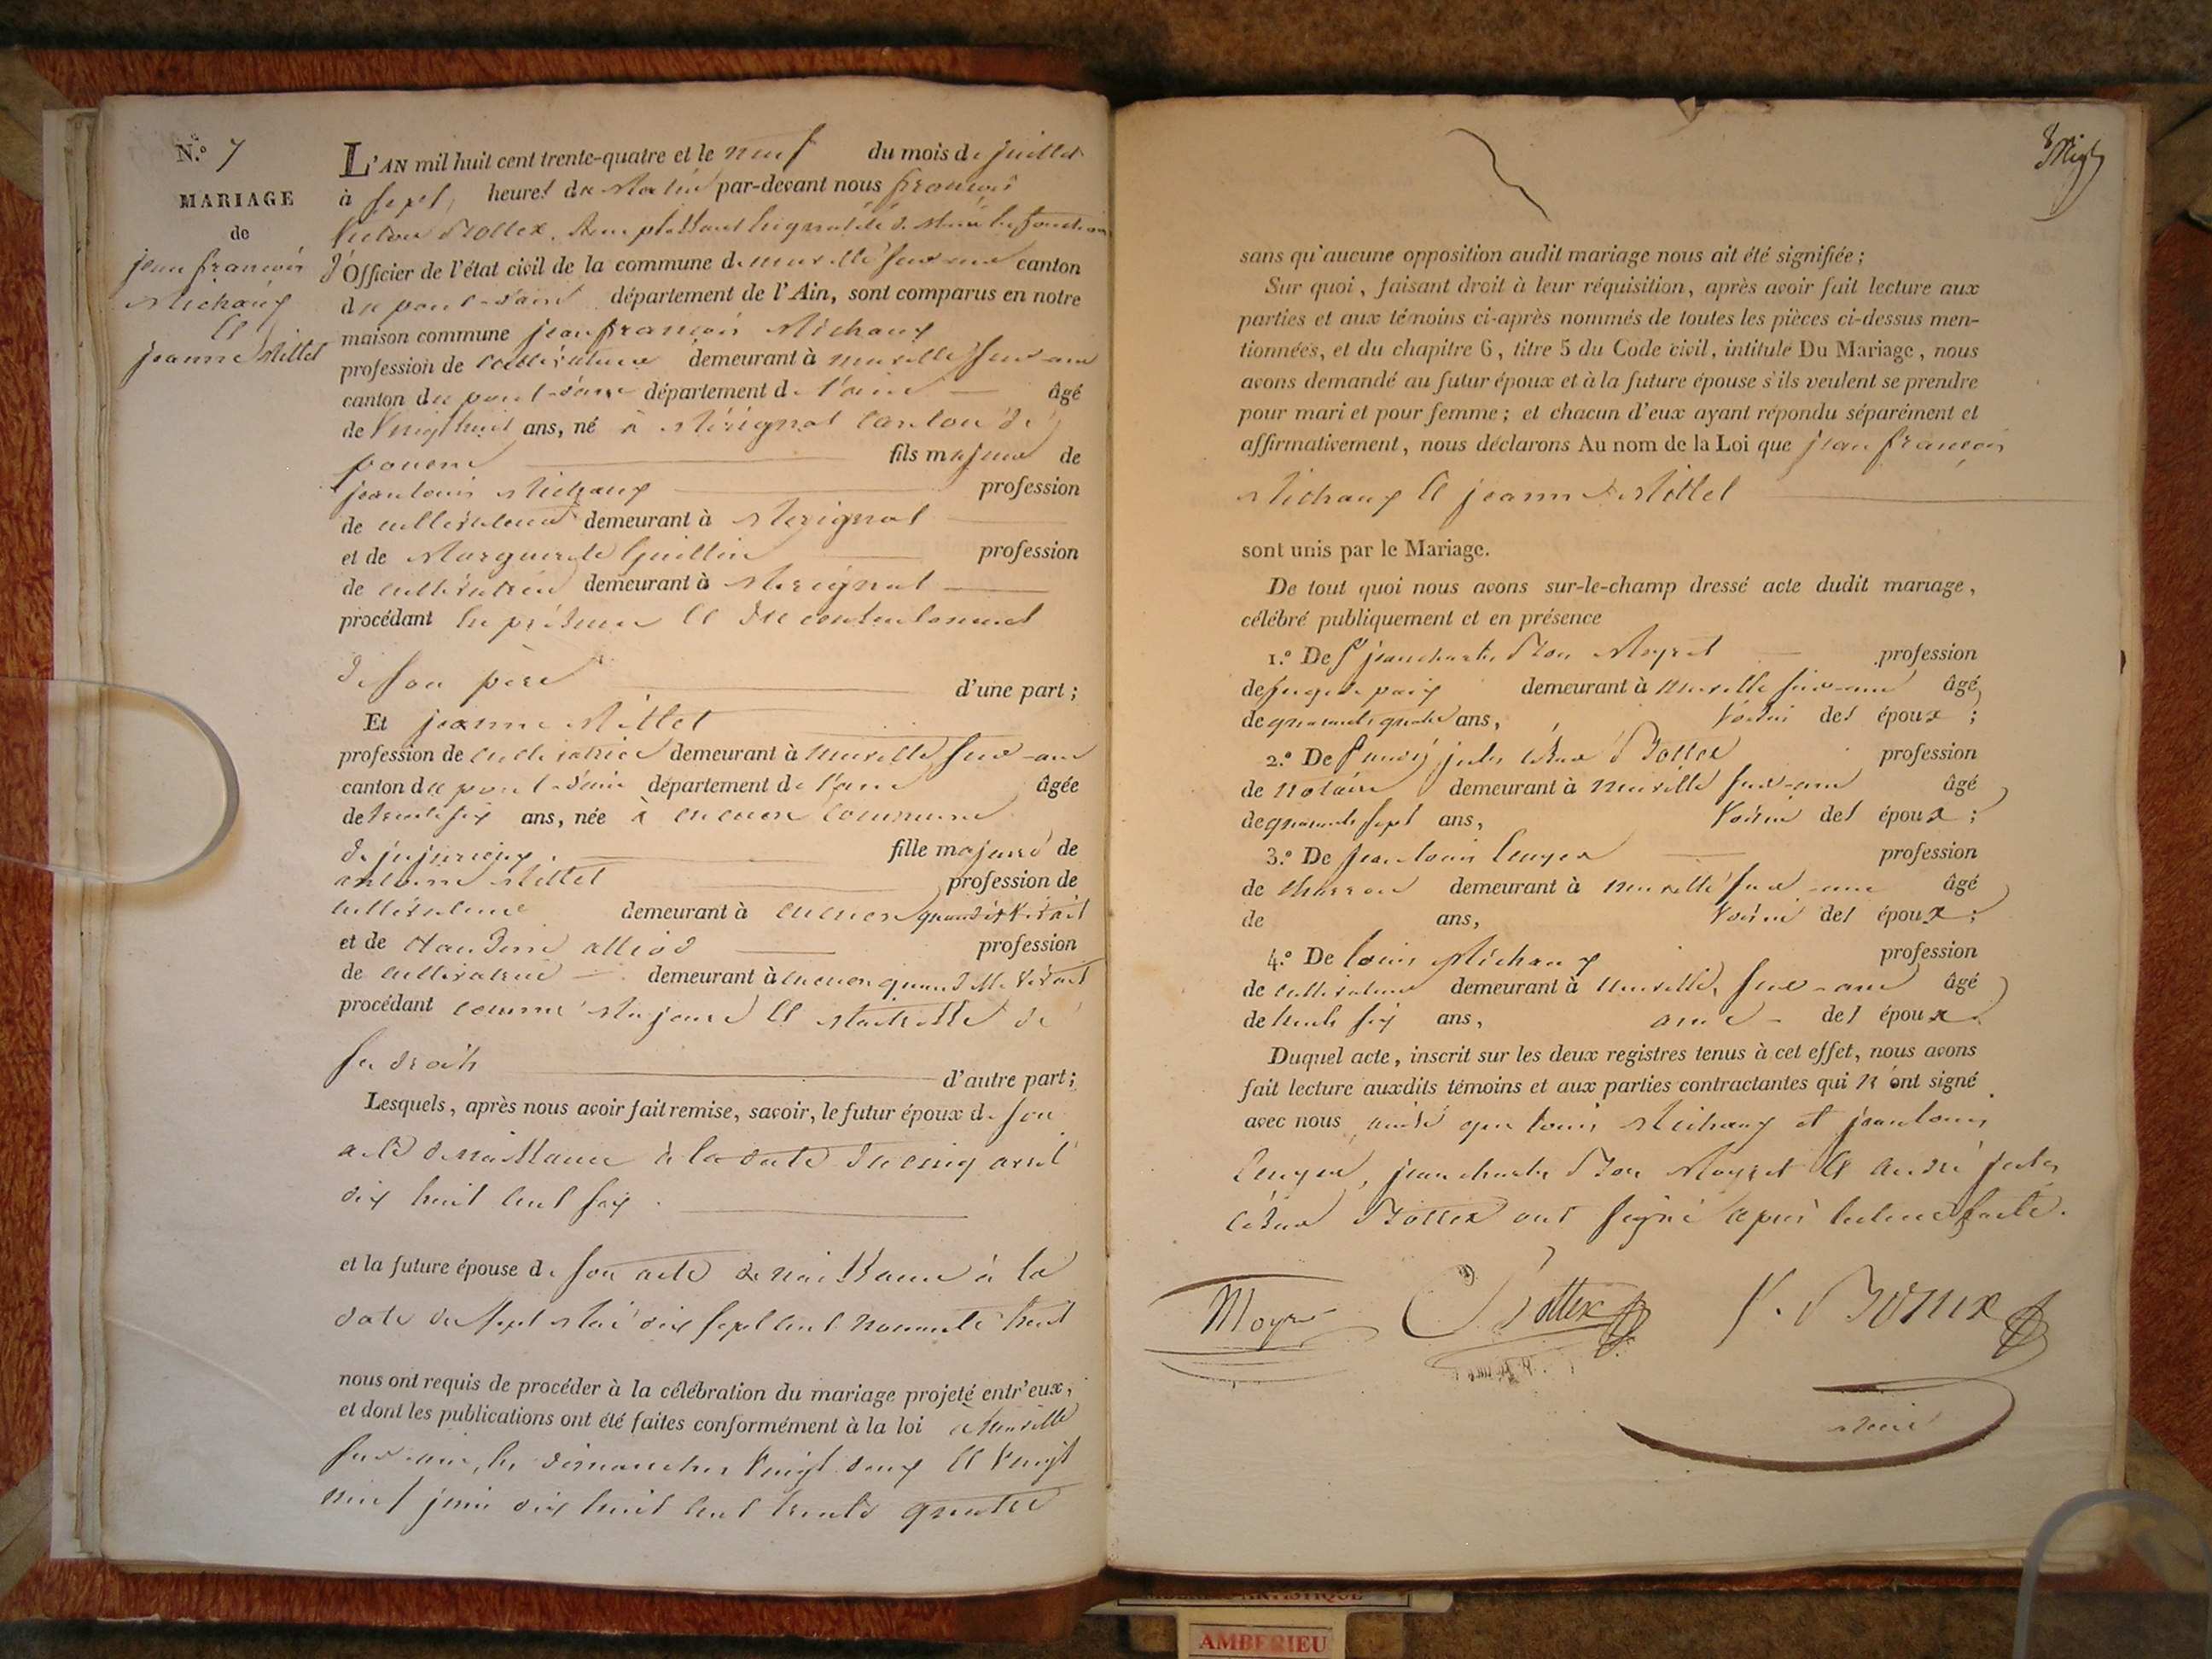 N.º 7
MARIAGE
de
jean françois
Michaux
et
jeanne Millet
L'AN mil huit cent trente-quatre et le neuf du mois de juillet
à sept heures du Matin par-devant nous françois
Bottex, Remplissant En qualité de Maire les fonctions
d'Officier de l'état civil de la commune de neuville sur ain canton
du pont-d'ain département de l'Ain, sont comparus en notre
maison commune jean françois Michaux
profession de cultivateur demeurant à neuville sur ain
canton du pont-d'ain département de l'ain âgé
de Vingt huit ans, né à Mérignat Canton de
poncin fils majeur de
jean louis Michaux profession
de cultivateur demeurant à Merignat
et de Marguerite Guillin profession
de cultivatrice demeurant à Merignat
procédant En présence et du consentement
de son père d'une part;
Et jeanne Millet
profession de cultivatrice demeurant à neuville sur ain
canton du pont-d'ain département de l'ain âgée
de trente six ans, née à cucuen Commune
de jujurieux fille majeure de
antoine Millet profession de
cultivateur demeurant à cucuen quand il Vivait
et de Claudine alliod profession
de cultivatrice demeurant à cucuen quand Elle Vivait
procédant comme Majeure et Maitresse de
ses droits d'autre part;
Lesquels, après nous avoir fait remise, savoir, le futur époux de son
acte de naissance à la date du cinq avril
dix huit cent six.
et la future épouse de son acte de naissance à la
date du sept Mai dix sept cent nonante huit
nous ont requis de procéder à la célébration du mariage projeté entr'eux,
et dont les publications ont été faites conformément à la loi à Neuville
sur ain, les dimanches Vingt deux et Vingt
neuf juin dix huit cent trente quatre
sans qu'aucune opposition audit mariage nous ait été signifiée;
Sur quoi, faisant droit à leur réquisition, après avoir fait lecture aux
parties et aux témoins ci-après nommés de toutes les pièces ci-dessus men-
tionnées, et du chapitre 6, titre 5 du Code civil, intitulé Du Mariage, nous
avons demandé au futur époux et à la future épouse s'ils veulent se prendre
pour mari et pour femme; et chacun d'eux ayant répondu séparément et
affirmativement, nous déclarons Au nom de la Loi que jean françois
Michaux et jeanne Millet
sont unis par le Mariage.
De tout quoi nous avons sur-le-champ dressé acte dudit mariage,
célébré publiquement et en présence
1.º De Sr jean charles Moyret profession
de juge de paix demeurant à neuville sur ain âgé
de quarante quatre ans, Voisin des époux;
2.º De Sr andré jules César Bottex profession
de notaire demeurant à neuville sur ain âgé
de quarante sept ans, Voisin des époux;
3.º De jean louis profession
de charron demeurant à neuville sur ain âgé
de ans, Voisin des époux;
4.º De louis Michaux profession
de cultivateur demeurant à neuville sur ain âgé
de trente six ans, ami des époux.
Duquel acte, inscrit sur les deux registres tenus à cet effet, nous avons
fait lecture auxdits témoins et aux parties contractantes qui n'ont signé
avec nous, ainsi que louis Michaux et jean louis
jean charles Moyret et andré jules
César Bottex ont signé après lecture faite.
Moyret Bottex f. Bottex
Maire
AMBERIEU